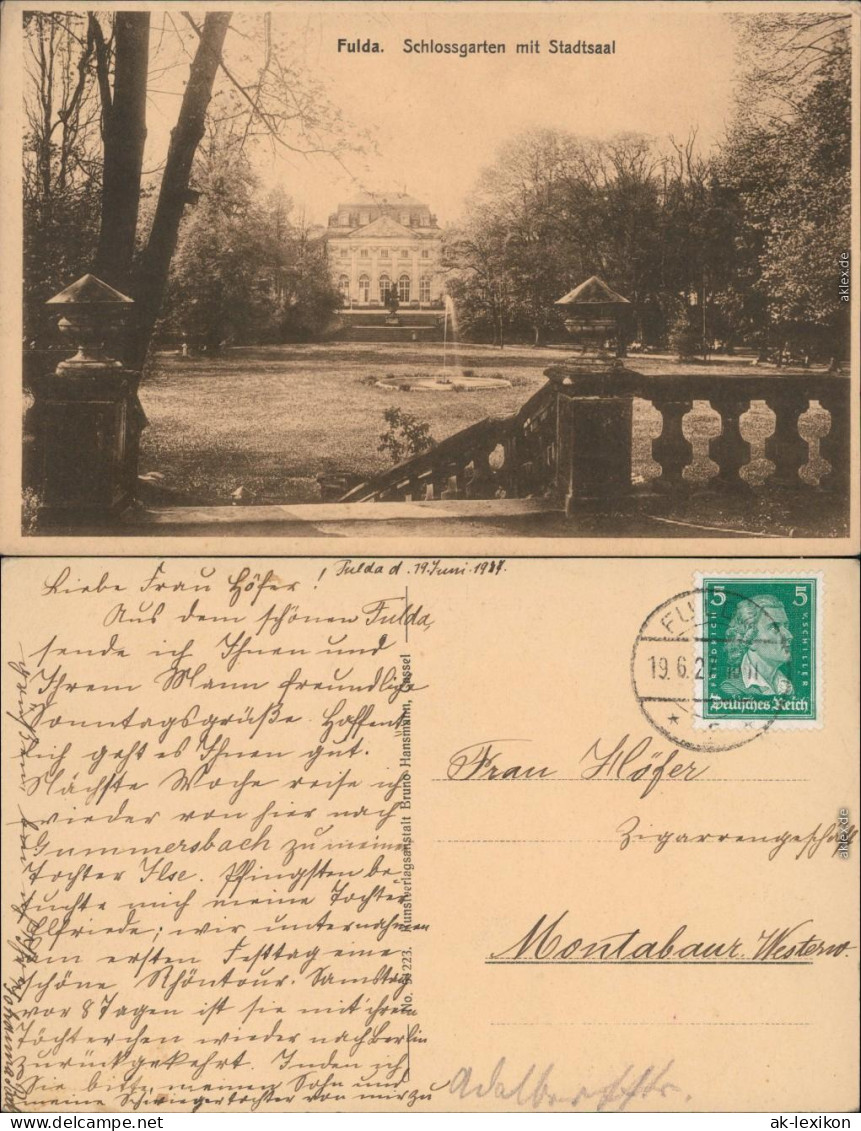 Fulda. Schlossgarten mit Stadtsaal
aklex.de
Liebe Frau Höfer!
Fulda d. 19 Juni. 1927.
Aus dem schönen Fulda,
sende ich Ihnen und
Ihrem Mann freundliche
Sonntagsgrüße. Hoffent
lich geht es Ihnen gut.
Nächste Woche reise ich
wieder von hier nach
Gummersbach zu meiner
Tochter Ilse. Pfingsten be
suchte mich meine Tochter
Elfriede; wir unternahmen
am ersten Festtag eine
schöne Rhöntour. Samstag
vor 8 Tagen ist sie mit ihrem
Töchterchen wieder nach Berlin
zurückgekehrt. Indem ich
Sie bitte meinen Sohn und
meine Schwiegertochter von mir zu
No. 94223. Kunstverlagsanstalt Bruno Hansmann, Cassel
FULDA
19.6.2
5 5
FRIEDRICH V. SCHILLER
Deutsches Reich
Frau Höfer
Zigarrengeschäft
Montabaur. Westerw.
Adalbertstr.
aklex.de
ak-lexikon